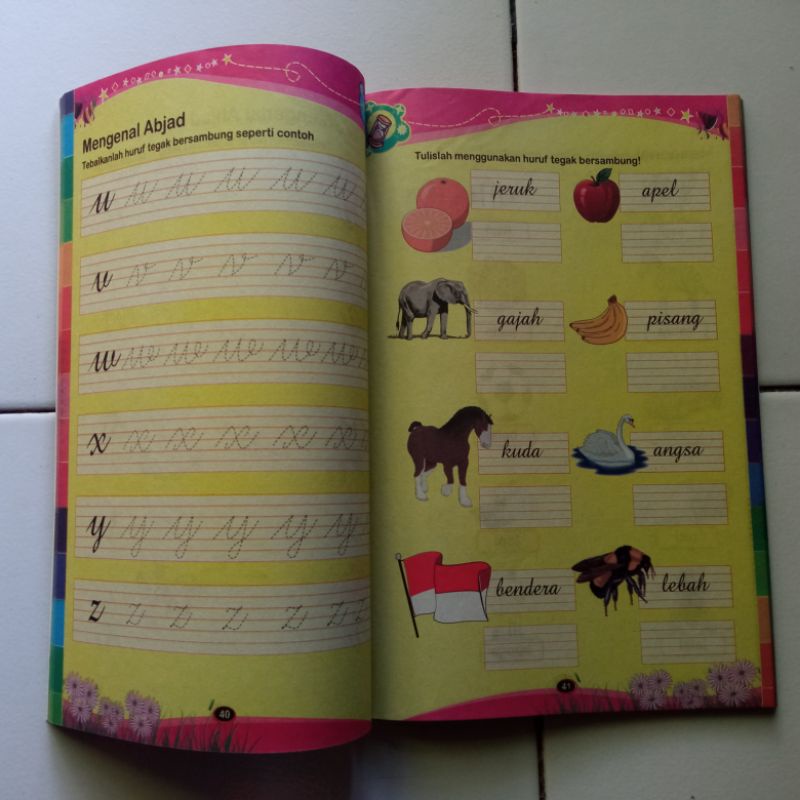 Mengenal Abjad
Tebalkanlah huruf tegak bersambung seperti contoh
u u u u u u
v v v v v v
w w w w w w
x x x x x x
y y y y y y
z z z z z z
40
Tulislah menggunakan huruf tegak bersambung!
jeruk
apel
gajah
pisang
kuda
angsa
bendera
lebah
41